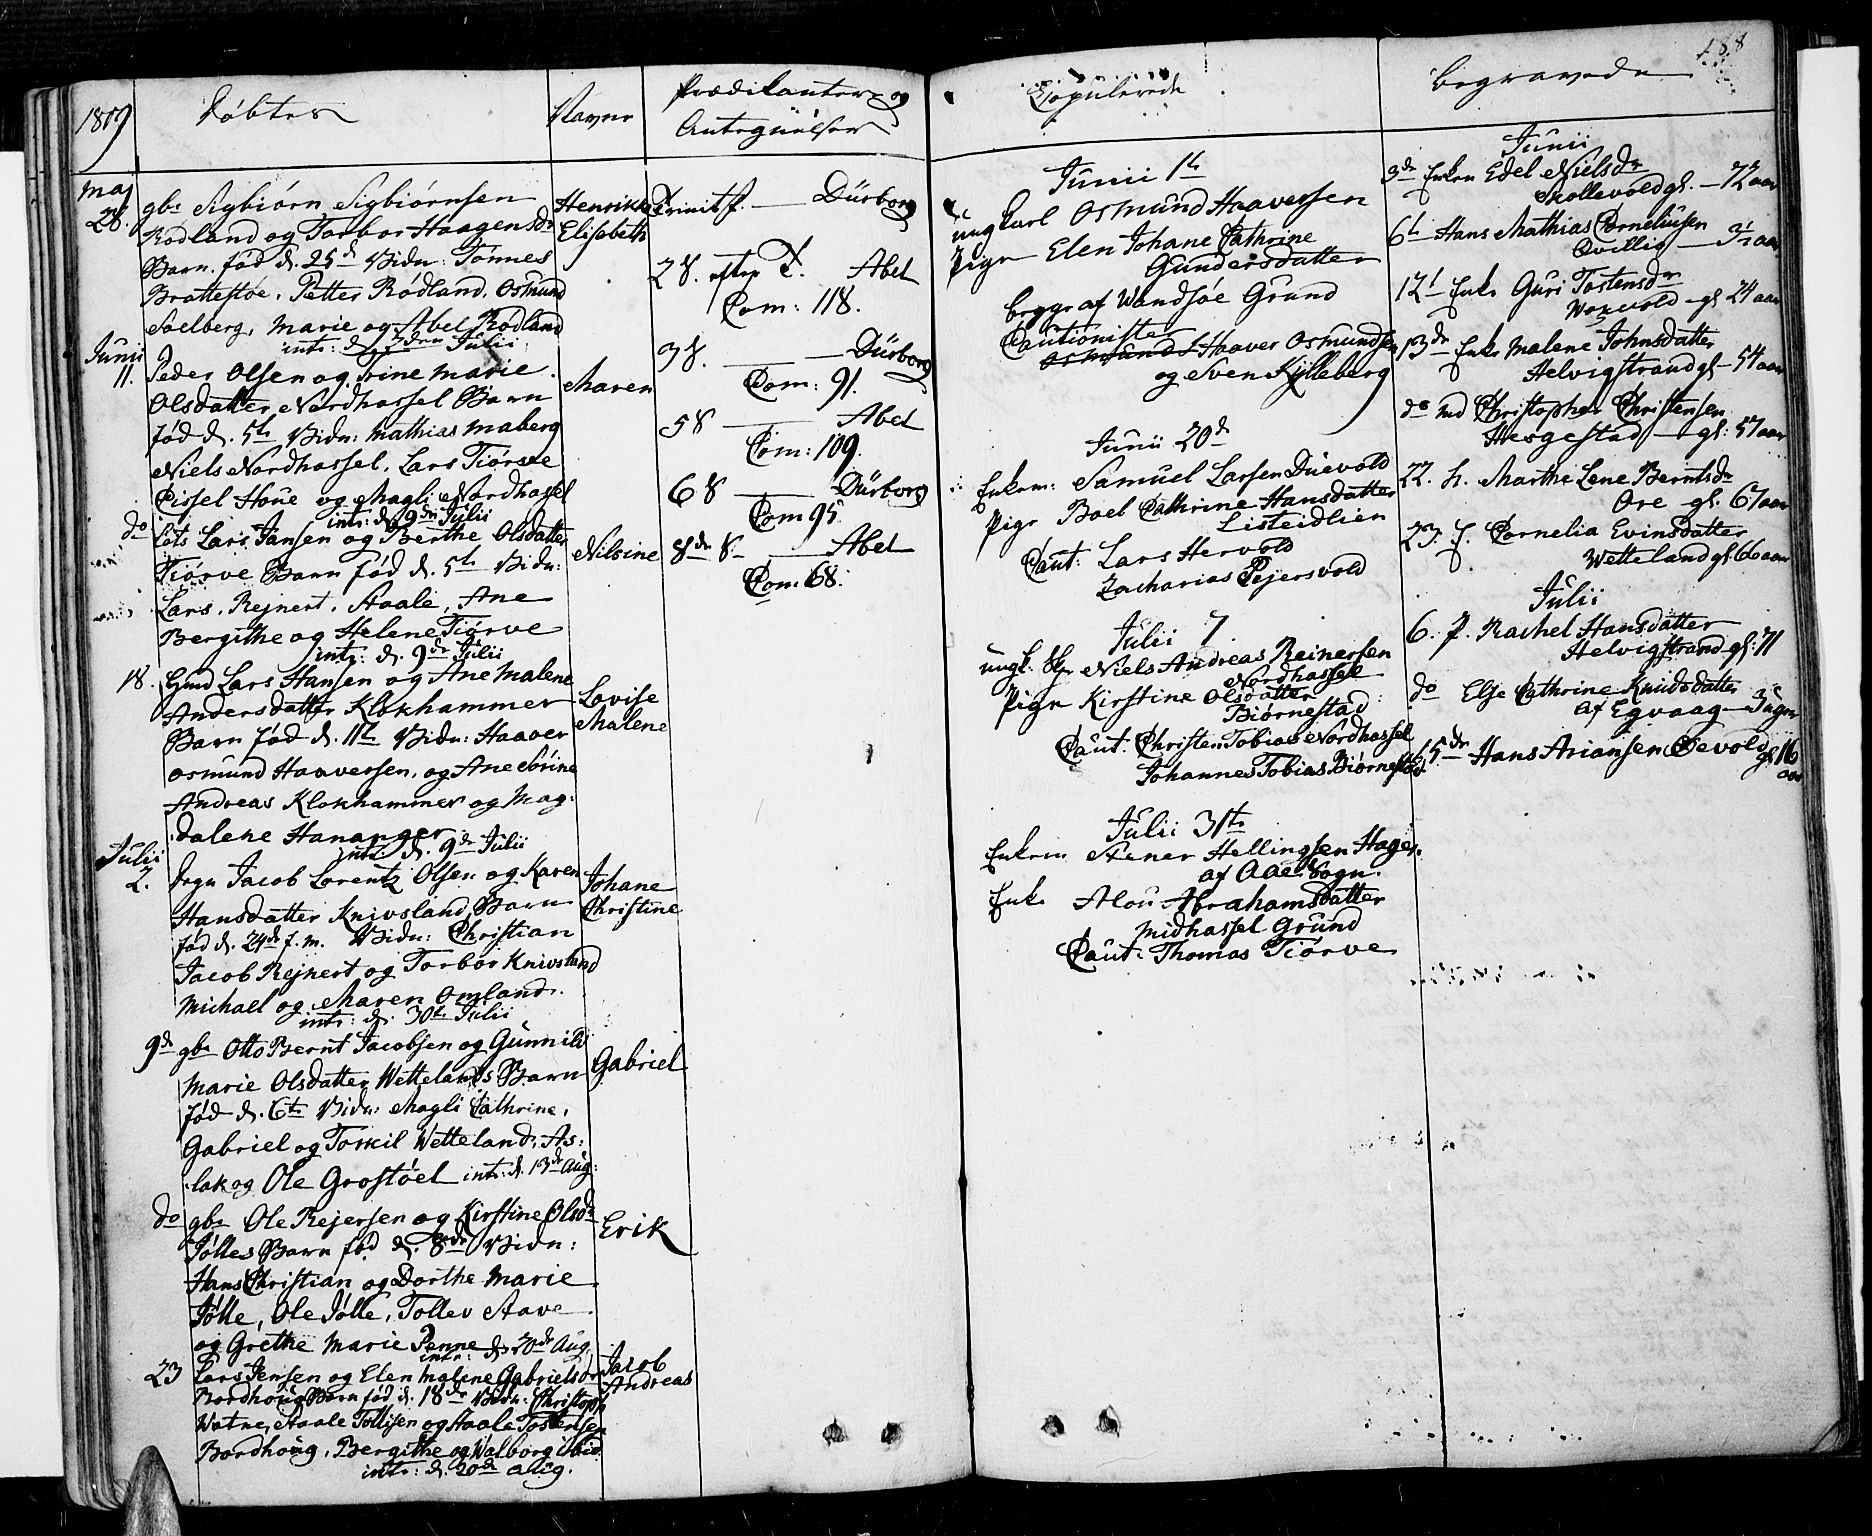 188
1809
Døbte
Navne
Prædikanter og
Antegnelser
Copulerede
begravede
Maj
28.
gbr Sigbiørn Sigbiørnsen
Rødland og Torbor Haagensdr
Barn. fød d. 25d Vidn: Tønnes
Brattestøe. Petter Rødland. Osmund
Soelberg, Marie og Abel Rødland
intr: d. 3den Julii
Henrikke
Elisabeth
Junii
11.
Peder Olsen og Trine Marie
Olsdatter Nordhassel Barn
fød d. 5te Vidn: Mathias Maberg
Niels Nordhassel. Lars Tiørve
Cissel Houe og Magli Nordhassel
intr: d. 9de Julii
Maren
do
Lots Lars Jansen og Berthe Olsdatter
Tiørve Barn fød d. 5te Vidn:
Lars. Rejnert. Staale, Ane
Bergithe og Helene Tiørve
intr: d. 9de Julii
Nilsine
18.
Gmd Lars Hansen og Ane Malene
Andersdatter Klokhammer
Barn fød d. 11te Vidn: Haaver
Osmund Haaversen. og Ane Sørine
Andreas Klokhammer og Mag:
dalene Hananger
intr d. 9de Julii
Lovise
Malene
Julii
2.
Jacob Lorentz Olsen og Karen
Hansdatter Knivsland Barn
fød d. 24de f. m. Vidn: Christian
Jacob Rejnert og Torbor Knivsland
Michael og Maren Omland.
intr: d. 30te Julii
Johane
Christine
9de
gbr Otto Bernt Jacobsen og Gunnild
Marie Olsdatter Wettelands Barn
fød d. 6te Vidn: Magli Cathrine.
Gabriel og Torkil Wetteland. As:
lak og Ole Grostøel intr: d. 13de Aug:
Gabriel
do
gbr Ole Rejersen og Kirstine Olsdr
Jølles Barn fød d. 8de Vidn:
Hans Christian og Dorthe Marie
Jølle, Ole Jølle, Tollev Aave
og Grethe Marie Penne
intr: d. 20de Aug.
Erik
23
Lars Jensen og Elen Malene Gabrielsdr
Bordhoug Barn fød d. 18de Vidn: Christoph
Watne, Staale Tollisen og Staale Tostensen
Bordhoug. Bergithe og Walborg ibid
intr: d. 20de Aug.
Jacob
Andreas
Trinit f. — Dürborg
2 S. efter T. Abel
Com: 118.
3 S. — Dürborg
Com: 91.
5 S — Abel
Com: 109.
6 S — Dürborg
Com 95
8de S — Abel
Com: 68.
Junii 1te
ungKarl Osmund Haaversen
Pige Elen Johane Cathrine
Gundersdatter
begge af Wandsøe Grund
Cautionister
Haaver Osmundsen
og Sven Kjlleberg
Junii 20de
Enkem: Samuel Larsen Duevold
Pige Boel Cathrine Hansdatter
Listeidlien
Caut: Lars Hervold
Zacharias Pejersvold
Julii 7.
ungk. Niels Andreas Reinersen
Nordhassel
Pige Kirstine Olsdatter
Biørnestad
Caut: Christen Tobias Nordhassel
Johannes Tobias Biørnestad.
Julii 31te
Enkem Stener Hellingsen Hager.
af Aae Sogn.
Enke Alou Abrahamsdatter
Midhassel Grund
Caut: Thomas Tiørve
Junii
3de Enken Edel Nielsdr
Skollevold gl. — 72 aar
6te Hans Mathias Corneliusen
Qvillio — 3½ aar
12te Enke Guri Tostensdr
gl 74 aar
13de Enke Malene Johnsdatter
Helvigstrand gl — 54 aar
do md Christopher Christensen
Hesgestad — gl: 57 aar
22. h. Marthe Lene Berntsdr
Ore gl. 67 aar
23. f. Cornelia Evinsdatter
Wetteland gl. 66 aar
Julii
6. P. Rachel Hansdatter
Helvigstrand gl: 71
do Else Cathrine Knudsdatter
af Egvaag — 3 uger
15de Hans Ariansen gl 16
aar